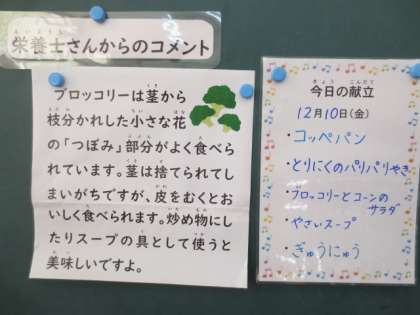 栄養士さんからのコメント
ブロッコリーは茎から
枝分かれした小さな花
の「つぼみ」部分がよく食べら
れています。茎は捨てられてし
まいがちですが、皮をむくとお
いしく食べられます。炒め物にし
たりスープの具として使うと
美味しいですよ。
今日の献立
12月10日(金)
・コッペパン
・とりにくのパリパリやき
・ブロッコリーとコーンの
サラダ
・やさいスープ
・ぎゅうにゅう